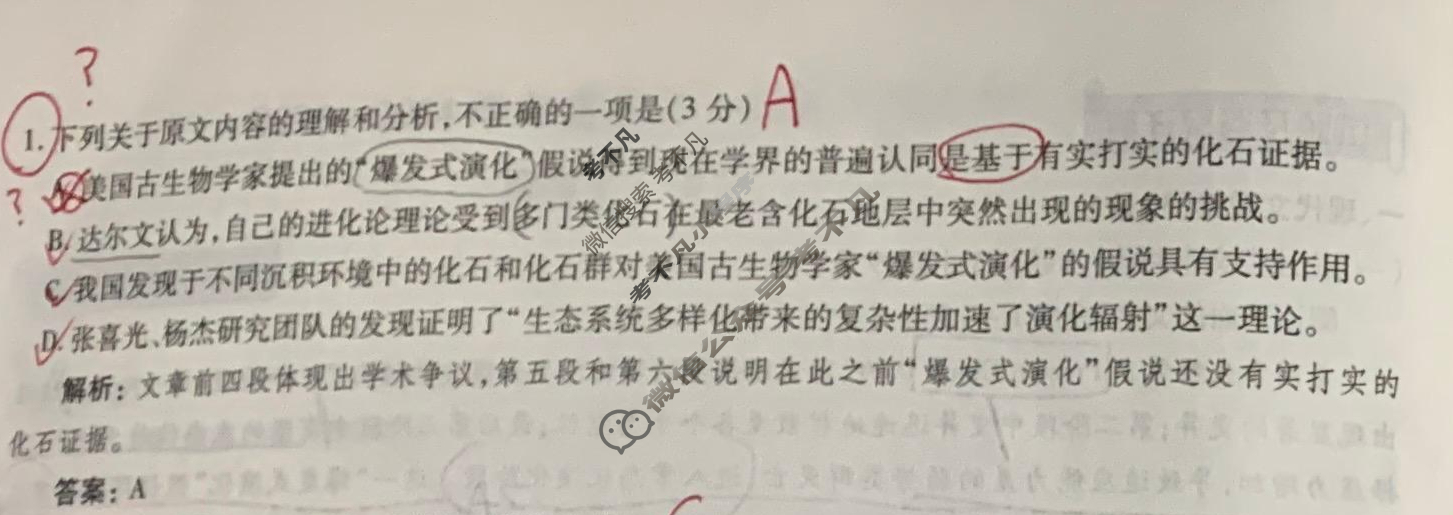 ?
1. 下列关于原文内容的理解和分析,不正确的一项是(3 分) A
? A. 美国古生物学家提出的“爆发式演化”假说得到现在学界的普遍认同是基于有实打实的化石证据。
B. 达尔文认为,自己的进化论理论受到多门类化石在最老含化石地层中突然出现的现象的挑战。
C. 我国发现于不同沉积环境中的化石和化石群对美国古生物学家“爆发式演化”的假说具有支持作用。
D. 张喜光、杨杰研究团队的发现证明了“生态系统多样化带来的复杂性加速了演化辐射”这一理论。
解析: 文章前四段体现出学术争议,第五段和第六段说明在此之前“爆发式演化”假说还没有实打实的
化石证据。
答案: A
考不凡
微信搜索 考不凡
考不凡小程序
微信公众号 考不凡